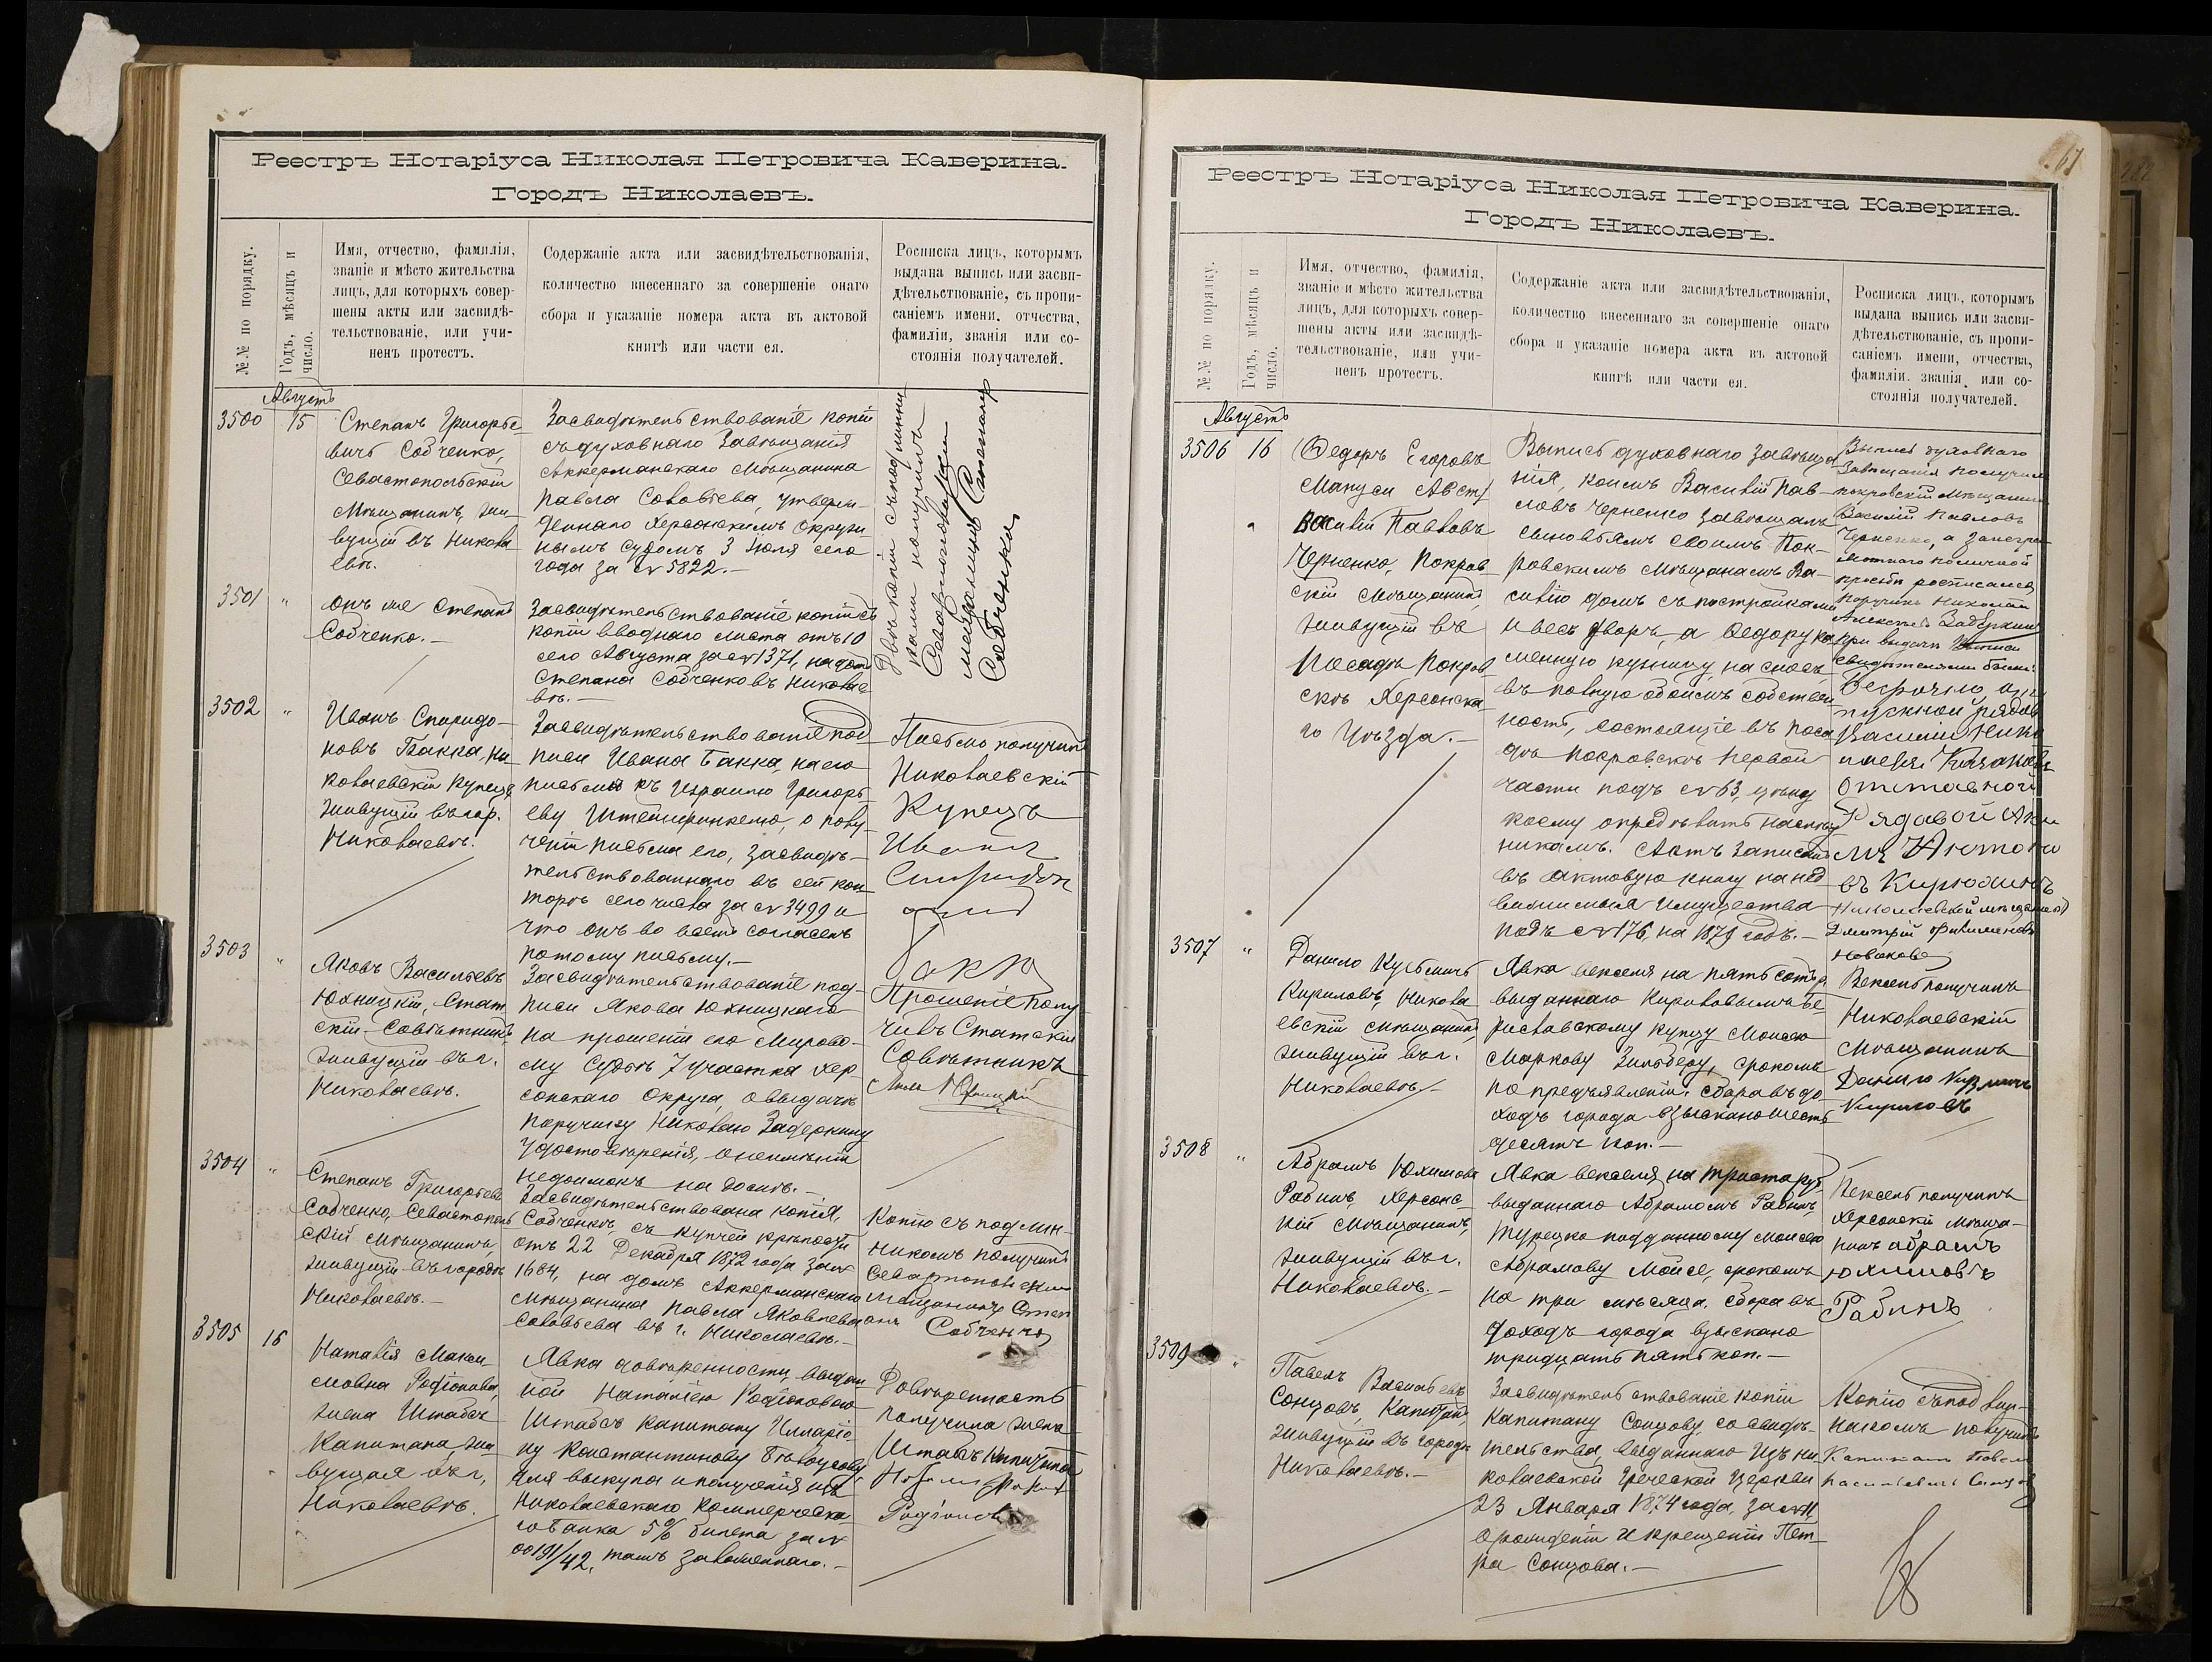 Реестръ Нотаріуса Николая Петровича Каверина.
Городъ Николаевъ.
№№ по порядку.
Годъ, мѣсяцъ и
число.
Имя, отчество, фамилія,
званіе и мѣсто жительства
лицъ, для которыхъ совер-
шены акты или засвидѣ-
тельствованіе, или учи-
ненъ протестъ.
Содержаніе акта или засвидѣтельствованія,
количество внесеннаго за совершеніе онаго
сбора и указаніе номера акта въ актовой
книгѣ или части ея.
Росписка лицъ, которымъ
выдана выпись или засви-
дѣтельствованіе, съ пропи-
саніемъ имени, отчества,
фамиліи, званія или со-
стоянія получателей.
Августъ
3500
15
Степанъ Григорье-
вичъ Собченко,
Севастопольскій
мѣщанинъ, жи-
вущій въ Никола
евѣ.
Засвидѣтельствованіе копіи
съ духовнаго завѣщанія
Аккерманскаго мѣщанина
Павла Соловьева, утверж-
деннаго Херсонскимъ Окруж
нымъ Судомъ 3 Юля сего
года за № 5822.-
Двѣ копіи съ подлинни
ками получилъ
Севастопольскій
мѣщанинъ Степанъ
Собченко
3501
"
Онъ же Степанъ
Собченко.-
Засвидѣтельствованіе копіи съ
копіи вводнаго листа отъ 10
сего Августа за № 1371, на домъ
Степана Собченко въ Николае
вѣ.-
3502
"
Иванъ Спиридо-
новъ Бакка, Ни-
колаевскій купецъ
живущій въ гор.
Николаевѣ.
Засвидѣтельствованіе под
писи Ивана Бакка, на его
письмѣ къ Израилю Григорь
еву Штейнфинкелю, о полу-
ченіи письма его, засвидѣ-
тельствованнаго въ сей кон
торѣ сего числа за № 3499 и
что онъ во всемъ согласенъ
по тому письму.-
Письмо получилъ
Николаевскій
Купецъ
Иванъ
Спиридон
Бакка
3503
"
Яковъ Васильевъ
Юхницкій, Стат
скій Совѣтникъ
живущій въ г.
Николаевѣ.
Засвидѣтельствованіе под-
писи Якова Юхницкаго
на прошеніи его Мирово-
му Судьѣ 7 участка Хер-
сонскаго Округа, о выдачѣ
поручику Николаю Задеркину
удостовѣренія, о неимѣніи
недоимокъ на домѣ.-
Прошеніе полу
чилъ Статскій
Совѣтникъ
3504
"
Степанъ Григорьевъ
Собченко, Севастополь
скій мѣщанинъ,
живущій въ городѣ
Николаевѣ.-
Засвидѣтельствована копія,
Собченко, съ купчей крѣпости
отъ 22 Декабря 1872 года за №
1684, на домъ Аккерманскаго
мѣщанина Павла Яковлева
Соловьева въ г. Николаевѣ.-
Копію съ подлин-
никомъ получилъ
Севастопольскій
мѣщанинъ Степ
анъ Собченко
3505
16
Наталія Макси
мовна Родіонова,
жена Штабсъ
Капитана, жи
вущая въ г.
Николаевѣ.
Явка довѣренности, выдан
ной Наталіею Родіоновою
Штабсъ Капитану Илларіо
ну Константинову Бѣлоусову
для выкупа и полученія изъ
Николаевскаго Коммерческа
го Банка 5% билета за №
00191/42, тамъ заложеннаго.-
Довѣренность
получила жена
Штабсъ Капитана
Родіонова
67
Реестръ Нотаріуса Николая Петровича Каверина.
Городъ Николаевъ.
№№ по порядку.
Годъ, мѣсяцъ и
число.
Имя, отчество, фамилія,
званіе и мѣсто жительства
лицъ, для которыхъ совер-
шены акты или засвидѣ-
тельствованіе, или учи-
ненъ протестъ.
Содержаніе акта или засвидѣтельствованія,
количество внесеннаго за совершеніе онаго
сбора и указаніе номера акта въ актовой
книгѣ или части ея.
Росписка лицъ, которымъ
выдана выпись или засви-
дѣтельствованіе, съ пропи-
саніемъ имени, отчества,
фамиліи, званія или со-
стоянія получателей.
Августъ
3506
16
Ѳедоръ Егоровъ
Василій Павловъ
Черненко, Покров
скій мѣщанинъ
живущій въ
Посадѣ Покров
скѣ Херсонска
го Уѣзда.-
Выпись духовнаго завѣща
нія, коимъ Василій Пав-
ловъ Черненко завѣщалъ
сыновьямъ своимъ Пок-
ровскимъ мѣщанамъ Ва-
силію домъ съ постройками
и весь дворъ, а Ѳедору ка
менную кузницу, на сносъ
въ полную обоимъ собствен
ность, состоящіе въ поса
дѣ Покровскѣ первой
части подъ № 63,
коему опредѣлить наслѣд
никамъ. Актъ записанъ
въ актовую книгу на нед
вижимыя имущества
подъ № 176, на 1879 годъ.-
Выпись духовнаго
завѣщанія получилъ
покровскій мѣщанинъ
Василій Павловъ
Черненко, а за негра
мотнаго по личной
просьбѣ росписался
поручикъ Николай
Алексѣевъ Задеркинъ
при выдачѣ выписи
свидѣтелями были:
Безсрочно от
пускной рядов
Василій Ники
Отставной
Рядовой Аки
мъ
въ Кирюхинъ
Николаевской мѣщанинъ
Дмитрій Филимоновъ
Новаковъ
3507
"
Данило Кузьминъ
Кириловъ, Никола
евскій мѣщанинъ
живущій въ г.
Николаевѣ
Явка векселя на пять сотъ р.
выданнаго Кириловымъ Бе
риславскому купцу Моисею
Маркову Зильберу, срокомъ
по предъявленіи. Сбора въ до-
ходъ города взыскано шесть
десятъ коп.-
Вексель получилъ
Николаевскій
мѣщанинъ
Данило Кузьминъ
Кириловъ
3508
"
Абрамъ Юхимовъ
Рабинъ, Херсонс-
кій мѣщанинъ,
живущій въ г.
Николаевѣ.-
Явка векселя на триста руб
выданнаго Абрамомъ Рабинъ,
Турецко подданному Моисею
Абрамову Мойсе, срокомъ
на три мѣсяца. Сбора въ
доходъ города взыскано
тридцать пять коп.-
Вексель получилъ
Херсонскій мѣща-
нинъ Абрамъ
Юхимовъ
Рабинъ
3509
"
Павелъ Васильевъ
Сонцовъ, Капитанъ
живущій въ городѣ
Николаевѣ.-
Засвидѣтельствованіе копіи
Капитану Сонцову, со свидѣ-
тельства, выданнаго изъ Ни
колаевской Греческой Церкви
23 Января 1874 года, за №
о рожденіи и крещеніи Пет-
ра Сонцова.-
Копію съ под лин-
никомъ получилъ
Капитанъ Павелъ
Васильевичъ Сонцовъ